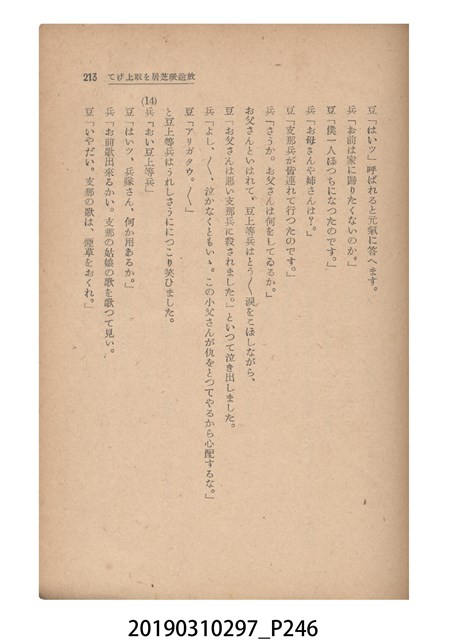 213　放送紙芝居を取上げて
豆「はいッ」呼ばれると元氣に答へます。
兵「お前は家に歸りたくないのか。」
豆「僕一人ぼつちになつたのです。」
兵「お母さんや姉さんは？。」
豆「支那兵が皆連れて行つたのです。」
兵「さうか。お父さんは何をしてゐるか。」
お父さんといはれて、豆上等兵はとう〱涙をこぼしながら、
豆「お父さんは悪い支那兵に殺されました。」といつて泣き出しました。
兵「よし、〱、泣かなくともいゝ。この小父さんが仇をとつてやるから心配するな。」
豆「アリガタウ。〱」
と豆上等兵はうれしさうににつこり笑ひました。
(14)
兵「おい豆上等兵」
豆「はいッ、兵隊さん、何か用あるか。」
兵「お前歌出來るかい。支那の姑娘の歌を歌つて見い。
豆「いやだい。支那の歌は、煙草をおくれ。」
20190310297_P246